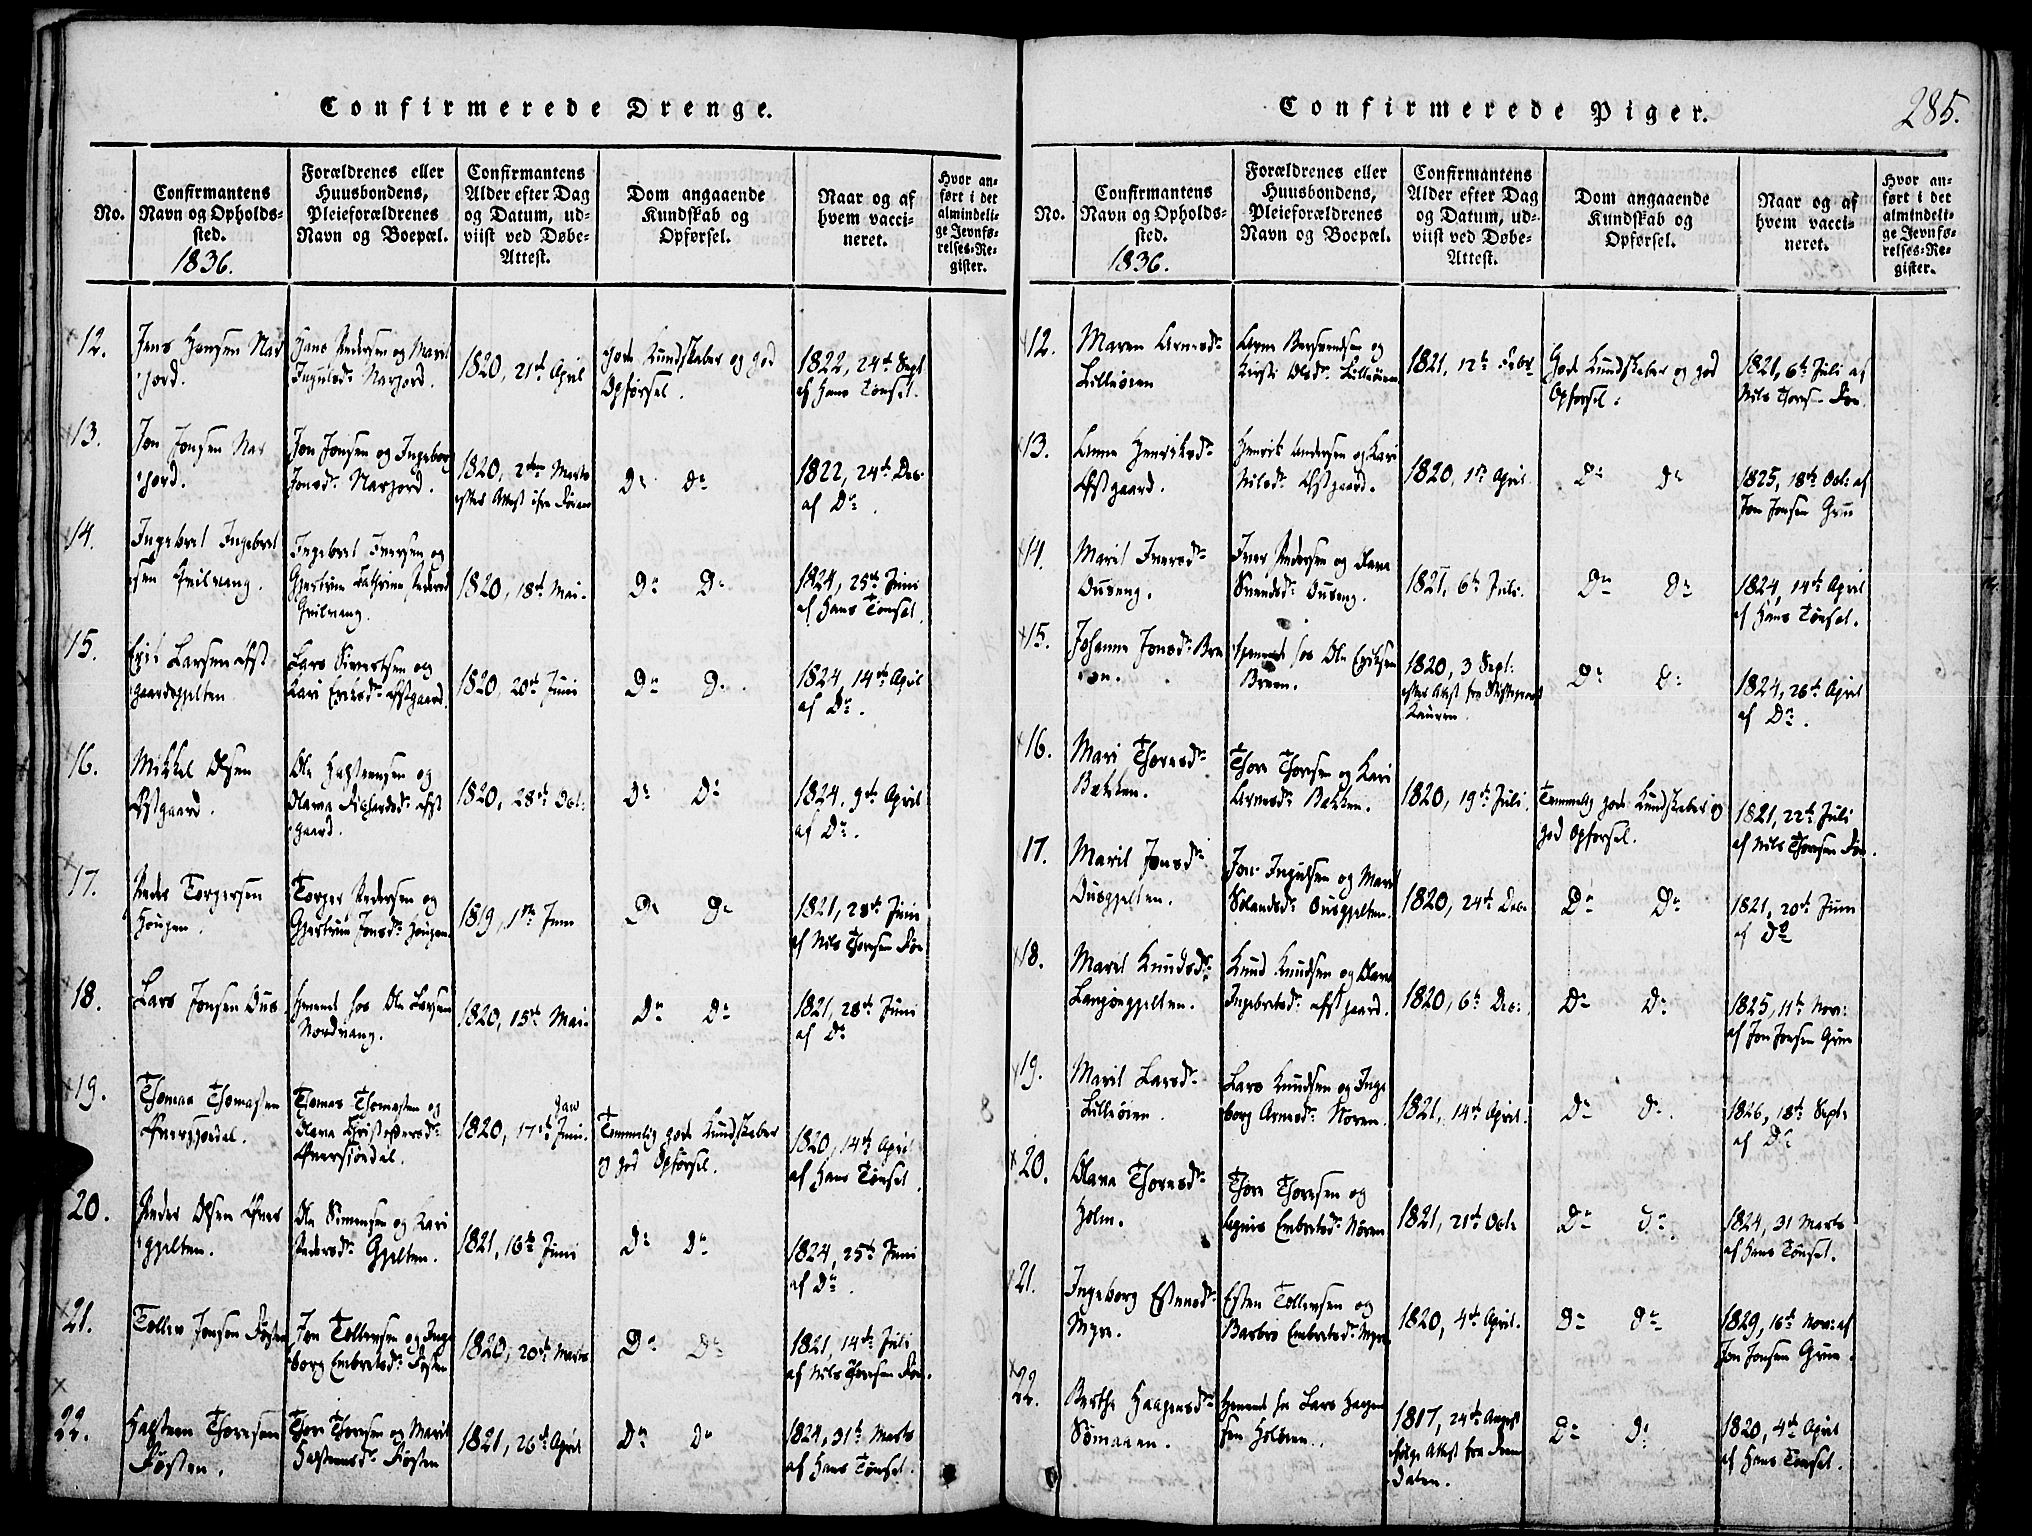 Confirmerede Drenge.
No.
Confirmantens
Navn og Opholds-
sted.
1836.
Forældrenes eller
Huusbondens,
Pleieforældrenes
Navn og Boepæl.
Confirmantens
Alder efter Dag
og Datum, ud-
viist ved Døbe-
Attest.
Dom angaaende
Kundskab og
Opførsel.
Naar og af
hvem vacci-
neret.
Hvor an-
ført i det
almindeli-
ge Jevnfø-
relses-Re-
gister.
12.
Jens Hansen Nar
jord.
Hans Pedersen og Marit
Ingulsd. Narjord.
1820, 21de April
gode Kundskaber og god
Opførsel.
1822, 24de Sept
af Hans Tønset.
13.
Jon Jonsen Nar
jord.
Jon Jonsen og Ingeborg
Jonsd. Narjord.
1820, 2den Marts
Do Do
1822, 24de Dec.
af Do.
14.
Ingebret Ingebret
sen
Ingebret Iversen og
Gjertrue Cathrine
1820, 18de Mai.
Do Do
1824, 25de Juni
af Hans Tønset.
15.
Erik Larsen Øst
gaardsgjelten
Lars Sivertsen og
Kari Eriksd. Østgaard.
1820, 20de Juni
Do Do
1824, 14de April
af Do.
16.
Mikkel Olsen
Østgaard.
Ole Halstensen og
Øst
gaard.
1820, 28de Oct.
Do Do
1824, 9de April
af Do.
17.
Peder Torgersen
Hougen.
Torger Pedersen og
Gjertrue Jonsd. Hougen
1819, 1ste Juni
Do Do
1821, 28de Juni
af Nils Thoresen Føn
18.
Lars Jonsen Ous
tjenende hos Ole Larsen
Nordvang.
1820, 15de Mai
Do Do
1821, 28de Juni
af Do
19.
Thomas Thomasen
Thomas Thomasen og
Olava Christophersd.
1820, 17de
Temmelig gode Kundskaber
og god Opførsel.
1820, 14de April
af Hans Tønset.
20.
Peder Olsen Øver
gjelten.
Ole Simensen og Kari
Pedersd. Gjelten.
1821, 16de Juni
Do Do
1824, 25de Juni
af Do.
21.
Tollev Jonsen Røsten
Jon Tollevsen og Inge
borg Embretsd. Røsten
1820, 20de Marts
Do Do
1821, 14de Juli
af Nils Thoresen Føn.
22.
Halsteen Thoresen
Røsten.
Thore Thoresen og Marit
Halsteensd. Røsten
1821, 26de April
Do Do
1824, 31te Marts
af Hans Tønset.
Confirmerede Piger.
285.
No.
Confirmantens
Navn og Opholds-
sted.
1836.
Forældrenes eller
Huusbondens,
Pleieforældrenes
Navn og Boepæl.
Confirmantens
Alder efter Dag
og Datum, ud-
viist ved Døbe-
Attest.
Dom angaaende
Kundskab og
Opførsel.
Naar og af
hvem vacci-
neret.
Hvor an-
ført i det
almindeli-
ge Jevnfø-
relses-Re-
gister.
12.
Maren Arnesd.
Lilleøien
Arne Bersvendsen og
Kirsti Olsd. Lilleøien
1821, 12te Febr
Gode Kundskaber og god
Opførsel.
1821, 6te Juli af
Nils Thoresen Føn.
13.
Anne Henriksd.
Østgaard.
Henrik Andersen og Kari
Nilsd. Østgaard.
1820, 1ste April
Do Do
1825, 18de Oct. af
Jon Jonsen Grue
14.
Marit Iversd.
Ouseng.
Iver Pedersen og
Svendsd. Ouseng.
1821, 6te Juli.
Do Do
1824, 14de April
af Hans Tønset.
15.
Johanne Jonsd. Bre
en.
tjenende hos Ole Eriksen
Breen.
1820, 3 Sept.
Do Do
1824, 26de April
af Do.
16.
Mari Thoresd.
Bækken.
Thore Thoresen og Kari
Arnesd. Bækken.
1820, 19de Juli
Temmelig gode Kundskaber og
god Opførsel.
1821, 22de Juli
af Nils Thoresen Føn.
17.
Marit Jonsd.
Ousgjelten.
Jon Ingulsen og Marit
Ousgjelten.
1820, 24de Dec.
Do Do
1821, 20de Juni
af Do
18.
Marit Knudsd.
Langøngjelten.
Knud Knudsen og Olava
Ingebretsd. Østgaard.
1820, 6te Dec.
Do Do
1825, 11te Nov.
af Jon Jonsen Grue
19.
Marit Larsd.
Lilleøien.
Lars Knudsen og Inge
borg Arnesd. Noren.
1821, 14de April.
Do Do.
1826, 18de Sept.
af Do
20.
Olava Thoresd.
Holm.
Thore Thoresen og
Embretsd. Nøren
1821, 21de Oct.
Do Do.
1824, 31 Marts
af Hans Tønset.
21.
Ingeborg Estensd.
Myre.
Esten Tollevsen og
Barbro Embretsd. Myre
1820, 4de April.
Do Do
1829, 16de Nov. af
Jon Jonsen Grue.
22.
Berthe Haagensd.
Sømaaen.
tjenende hos Lars Haagen
sen Holøien.
1817, 24de August
ifølge Attest fra
dalen.
Do Do
1820, 4de April
af Hans Tønset.